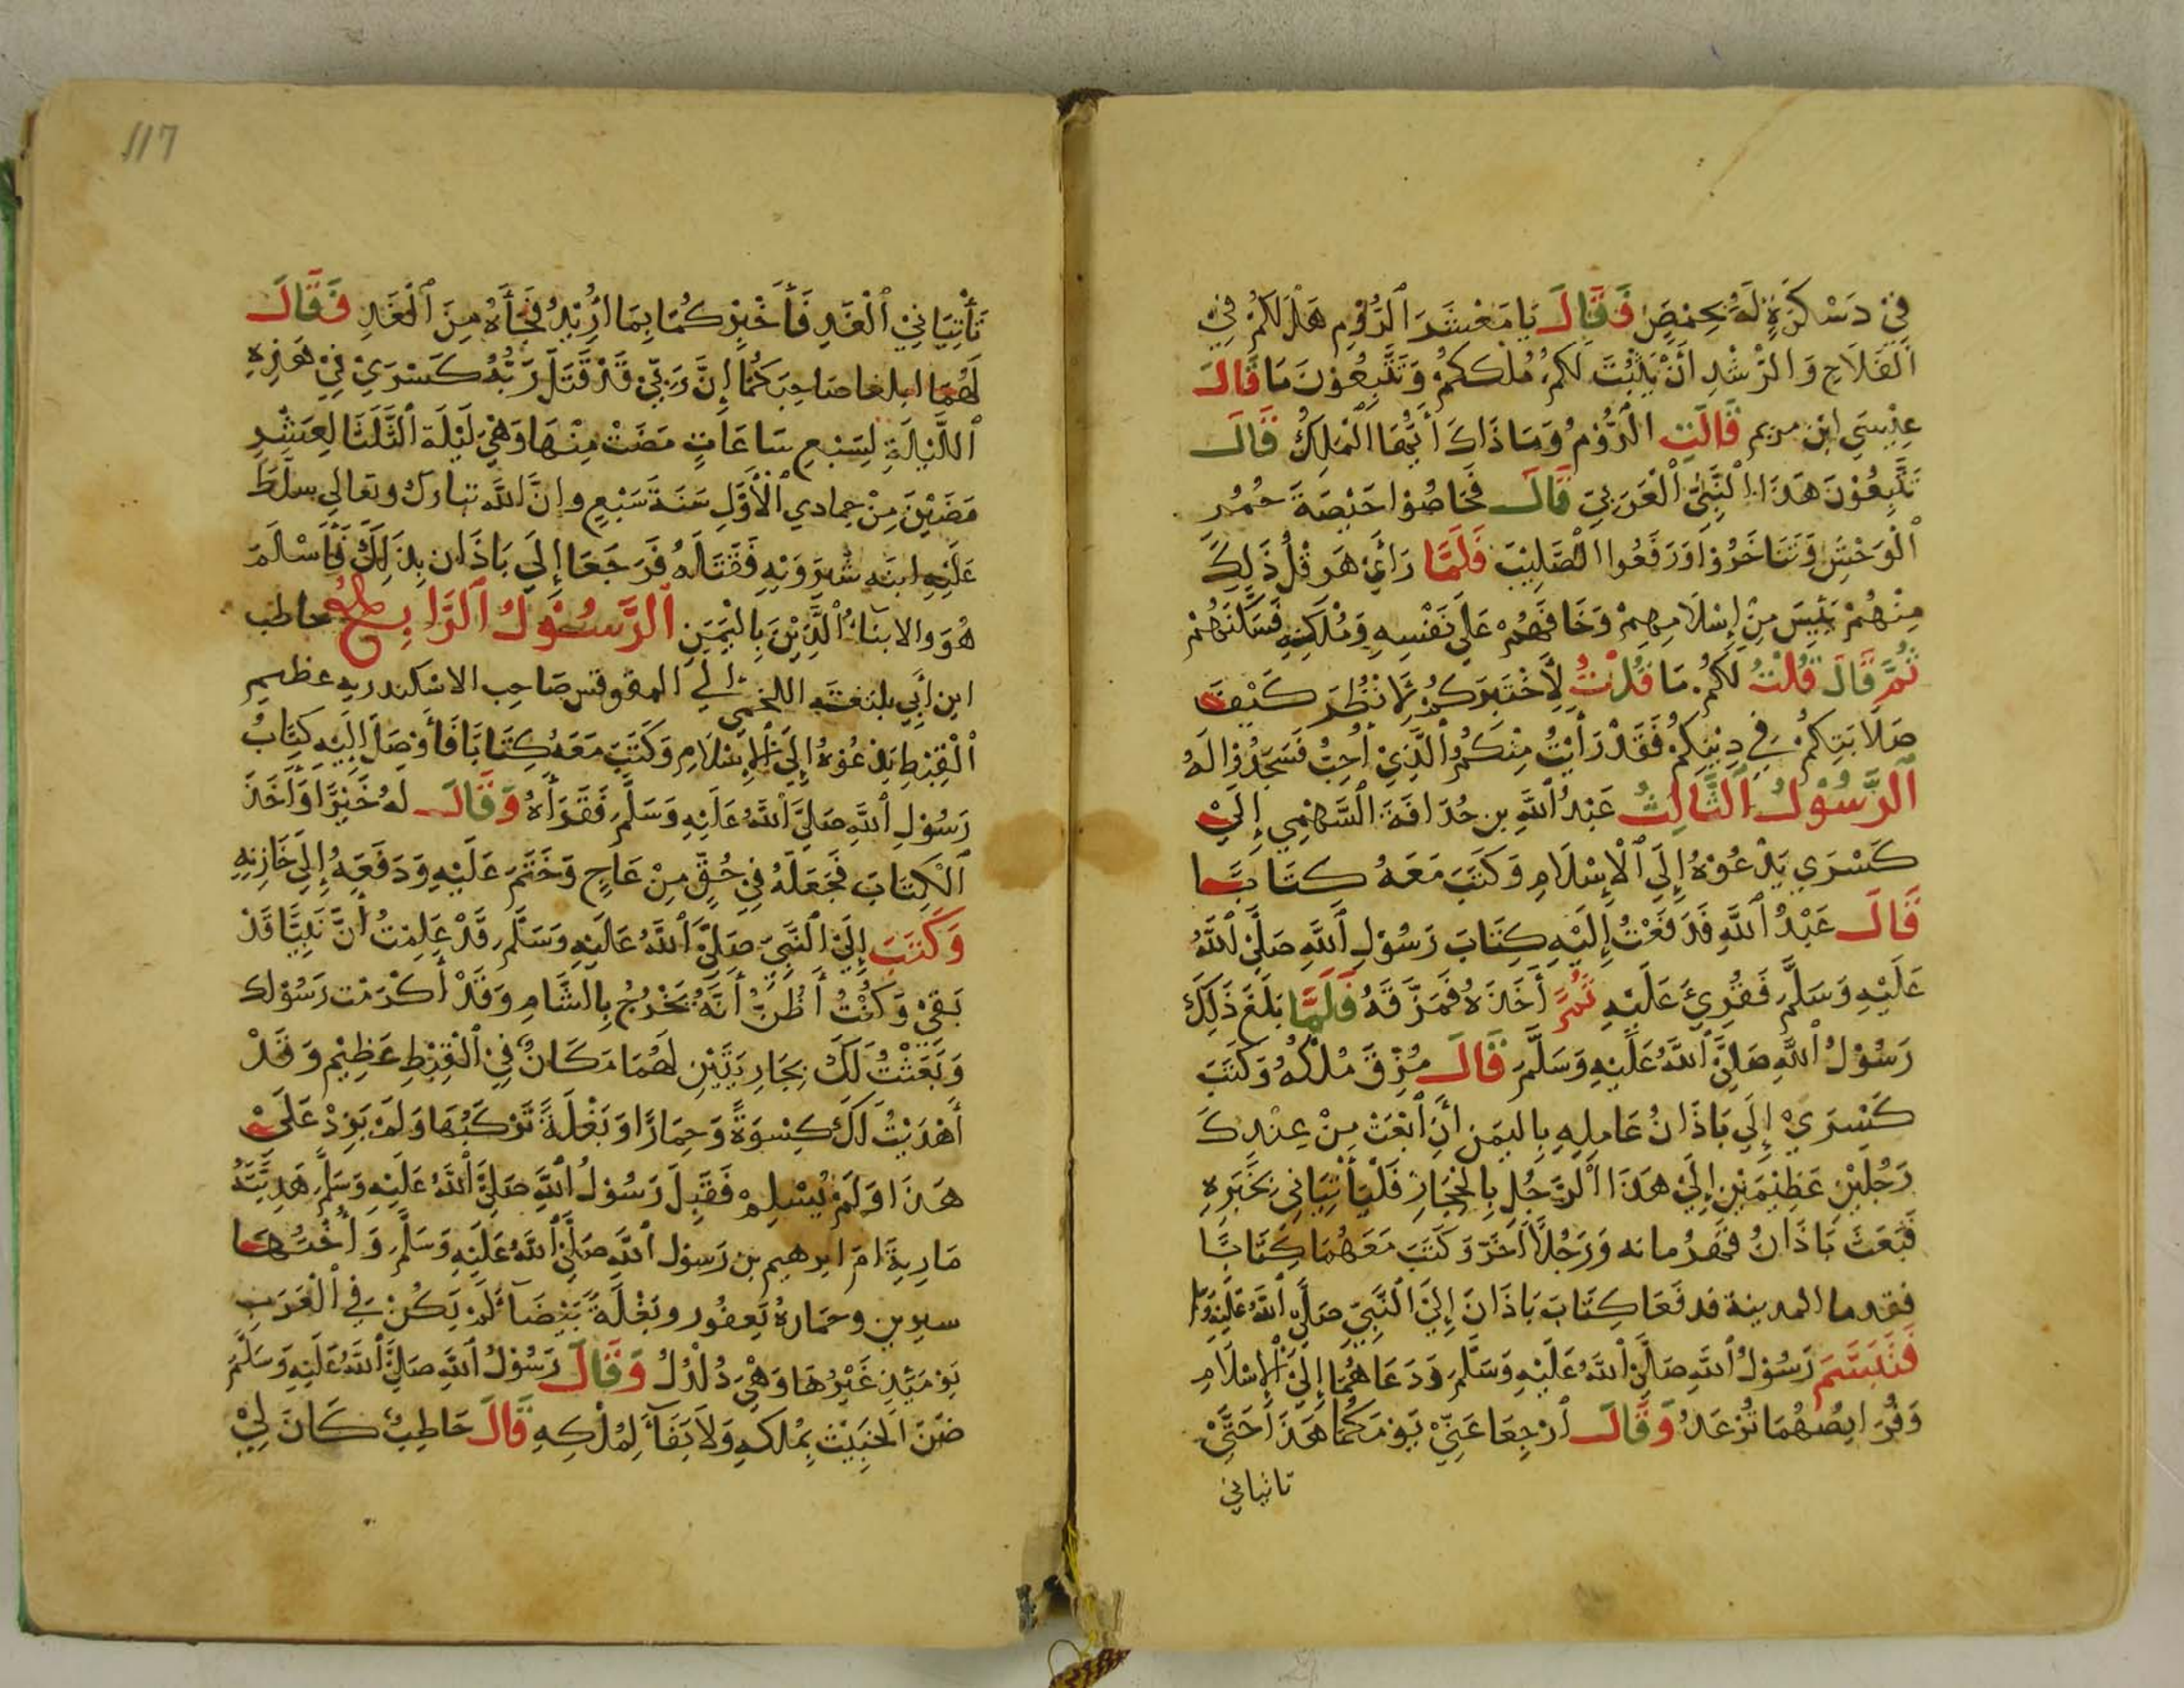 فِي دَسْكَرَةٍ لَهُ بِحِمْصَ فَقَالَ يَا مَعْشَرَ ٱلرُّوْمِ هَلْ لَكُمْ فِي
ٱلْفَلَاحِ وَالرُّشْدِ أَنْ يَثْبُتَ لَكُمْ مُلْكُكُمْ وَتَتَّبِعُوْنَ مَا قَالَ
عِيْسَى ابن مريم قَالَتِ الرُّوْمُ وَمَا ذَاكَ أَيُّهَا الْمَلِكُ قَالَ
تَتَّبِعُوْنَ هَذَا النَّبِيَّ ٱلْعَرَبِيّ قَالَ فَحَاصُوْا حَيْصَةَ حُمُرِ
ٱلْوَحْشِ وَتَنَاخَرُوْا وَرَفَعُوا الصَّلِيْبَ فَلَمَّا رَأَى هَرَقْلُ ذَلِكَ
مِنْهُمْ يَئِيسَ مِنْ إِسْلَامِهِمْ وَخَافَهُمْ عَلَى نَفْسِهِ وَمُلْكِهِ فَسَكَّنَهُمْ
ثُمَّ قَالَ قُلْتُ لَكُمْ مَا قُلْتُ لِأَخْتَبِرَكُمْ لِأَنْظُرَ كَيْفَ
صَلَابَتِكُمْ فِي دِيْنِكُمْ فَقَدْ رَأَيْتُ مِنْكُمُ الَّذِيْ أُحِبُّ فَسَجَدُوْا لَهُ
ٱلرَّسُوْلُ ٱلثَّالِثُ عَبْدُ ٱللَّهِ بن حُذَافَةَ السَّهْمِي إِلَى
كَسْرَي يَدْعُوْهُ إِلَى ٱلْإِسْلَامِ وَكَتَبَ مَعَهُ كِتَابًا
قَالَ عَبْدُ ٱللَّهِ فَدَفَعْتُ إِلَيْهِ كِتَابَ رَسُوْلِ ٱللَّهِ صَلَّى ٱللَّهُ
عَلَيْهِ وَسَلَّمَ فَقُرِئَ عَلَيْهِ ثُمَّ أَخَذَهُ فَمَزَّقَهُ فَلَمَّا بَلَغَ ذَلِكَ
رَسُوْلُ ٱللَّهِ صَلَّى ٱللَّهُ عَلَيْهِ وَسَلَّمَ قَالَ مُزِّقَ مُلْكُهُ وَكَتَبَ
كَسْرَيْ إِلَى بَاذَانُ عَامِلِهِ بِاليَمَنِ أَنِ ٱبْعَثْ مِنْ عِنْدِكَ
رَجُلَيْنِ عَظِيْمَيْنِ إِلَى هَذَا الرَّجُلِ بِالْحِجَازِ فَلْيَأْتِيَانِي بِخَبَرِهِ
فَبَعَثَ بَاذَانُ قهرمانه وَرَجُلًا أَخَرَ وَكَتَبَ مَعَهُمَا كِتَابًا
فقدما المدينة فدفَعَا كِتَابَ بَاذَانَ إِلَى النَّبِيِّ صَلَّى ٱللَّهُ عَلَيْهِ وَسَلَّمَ
فَتَبَسَّمَ رَسُوْلُ ٱللَّهِ صَلَّى ٱللَّهُ عَلَيْهِ وَسَلَّمَ وَدَعَاهُمَا إِلَى الْإِسْلَامِ
وَفَرَايِصُهُمَا تُرْعَدُ وَقَالَ ٱرْجِعَا عَنِّيْ يَوْمَكُمَا هَذَا حَتَّى
تاتياني
تَأْتِيَانِيْ ٱلْغَدِ فَأَخْبِرْكُمَا بِمَا أُرِيْدُ فَجَأَاهُ مِنَ ٱلْغَدِ فَقَالَ
لَهُمَا ابلغا صَاحِبَكُمَا إِنَّ رَبِّيْ قَدْ قَتَلَ رَبُّهُ كَسْرَيْ فِي هَذِهِ
ٱللَّيْلَةِ لِسَبْعِ سَاعَاتٍ مَضَتْ مِنْهَا وَهِيَ لَيْلَة الثَّلَثَا لِعَشْرِ
مَضَيْنَ مِنْ جمادي ٱلْأَوَّلِ سَنَةَ سَبْعٍ وإنَّ اللَّه تبارك وتعالى سلَّطَ
عَلَيْهِ ابنه شِيْرَوَيْهِ فَقَتَلَهُ فَرَجَعَا إِلَى بَاذَان بِذَلِكَ فَأَسْلَمَ
هُوَ وَالابنَاءُ الَّذِيْنَ بِالْيَمَنِ ٱلرَّسُوْلُ ٱلرَّابِعُ حاطب
ابن أَبِي بلتعَته اللخمى الى المقوقس صَاحِب الاسْكندريه عظيم
ٱلْقِبْطِ يَدْعُوْهُ إِلَى الْإِسْلَامِ وَكَتَبَ مَعَهُ كِتَابًا فَأَوْصَلَ إِلَيْهِ كِتَابُ
رَسُوْلِ ٱللَّهِ صَلَّى ٱللَّهُ عَلَيْهِ وَسَلَّمَ فَقَرَأَهُ وَقَالَ لهُ خَيْرًا وَأَخَذَ
ٱلْكِتَابَ فَجَعَلَهُ فِي حُقٍّ مِنْ عَاجٍ وَخَتَمَ عَلَيْهِ وَدَفَعَهُ إِلَى خَازِنِهِ
وَكَتَبَ إِلَى النَّبِيّ صَلَّى ٱللَّهُ عَلَيْهِ وَسَلَّمَ قَدْ عَلِمْتُ أَنَّ نَبِيًّا قَدْ
بَقِيَ وَكُنْتُ أَظُنُّ أَنَّهُ يَخْرُجُ بِالشَّامِ وَقَدْ أَكْرَمْت رَسُوْلك
وَبَعَثْتُ لَكَ بِجَارِيَتَيْنِ لَهُمَا مَكَانٌ فِي ٱلْقِبْطِ عَظِيْم وَقَدْ
أَهْدَيْتُ لَكَ كِسْوَةً وَحِمَارًا وَبَغْلَةً تَرْكَبُهَا وَلَمْ يَزِدْ عَلَى
هَذَا وَلَمْ يُسْلِمْ فَقَبِلَ رَسُوْلُ ٱللَّهِ صَلَّى ٱللَّهُ عَلَيْهِ وَسَلَّمَ هَدِيَّتَهُ
مَارِيةَ امّ ابرهيم بن رَسول اللَّه صَلَّى ٱللَّهُ عَلَيْهِ وَسَلَّمَ وَأُخْتُهَا
سيرين وحمَارهُ يَعفُور وبَغْلَةً بَيْضَآ لَمْ يَكُنْ فِي ٱلْعَرَبِ
يَوْمَئِذٍ غَيْرُهَا وَهِيَ دُلْدُلُ وَقَالَ رَسُوْلُ ٱللَّهِ صَلَّى ٱللَّهُ عَلَيْهِ وَسَلَّمَ
ضَنَّ الخَبِيْث بِمُلكِهِ وَلَا بَقَآ لِمُلْكِهِ قَالَ حَاطِبُ كَانَ لِيْ
117